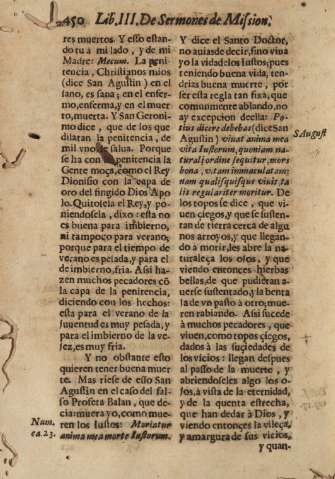 450 Lib. III. De Sermones de Mission.
res muertos. Y esso estan-
do tu a mi lado, y de mi
Madre: Mecum. La peni-
tencia, Christianos mios
(dice San Agustin) en el
sano, es sana; en el enfer-
mo, enferma, y en el muer-
to, muerta. Y San Geroni-
mo dice, que de los que
dilatan la penitencia, de
mil vno se salua. Porque
se ha con la penitencia la
Gente moça, como el Rey
Dionisio con la capa de
oro del fingido Dios Apo
lo. Quitosela el Rey, y po-
niendosela, dixo: esta no
es buena para imbierno,
ni tampoco para verano,
porque para el tiempo de
verano es pesada, y para el
de imbierno, fria. Assi ha-
zen muchos pecadores cõ
la capa de la penitencia,
diciendo con los hechos:
esta para el verano de la
juuentud es muy pesada, y
para el imbierno de la ve-
jez, es muy fria.
Y no obstante esto
quieren tener buena muer
te. Mas riese de esso San
Agustin en el caso del fal-
so Profeta Balan, que de
cia: muera yo, como mue-
ren los Iustos: Moriatur
anima mea morte Iustorum.
Num.
ca. 23.
Y dice el Santo Doctor,
no auias de decir, sino viua
yo la vida de los Iustos; pues
teniendo buena vida, ten-
dria buena muerte, por
ser esta regla tan fixa, que
comunmente ablando, no
ay excepcion de ella: Po-
tius dicere debebas (dice San
Agustin) viuat anima mea
vita Iustorum, quoniam na-
turali ordine sequitur, mors
bona, vitam immaculatam;
nam qualis quisque viuit ta
lis regulariter moritur. De
los topos se dice, que vi-
uen ciegos, y que se susten-
tan de tierra cerca de algu
nos arroyos, y que llegan-
do à morir, les abre la na-
turaleça los ojos, y que
viendo entonces hierbas
bellas, de que pudieran a-
uerse sustentado, y la benta
la de vn passo a otro, mue-
ren rabiando. Assi sucede
à muchos pecadores, que
viuen, como topos ciegos,
dados à las suciedades de
los vicios: llegan despues
al passo de la muerte, y
abriendoseles algo los o-
jos, à vista de la eternidad,
y de la quenta estrecha,
que han de dar à Dios, y
viendo entonces la vileça,
y amargura de sus vicios,
y quan-
S August